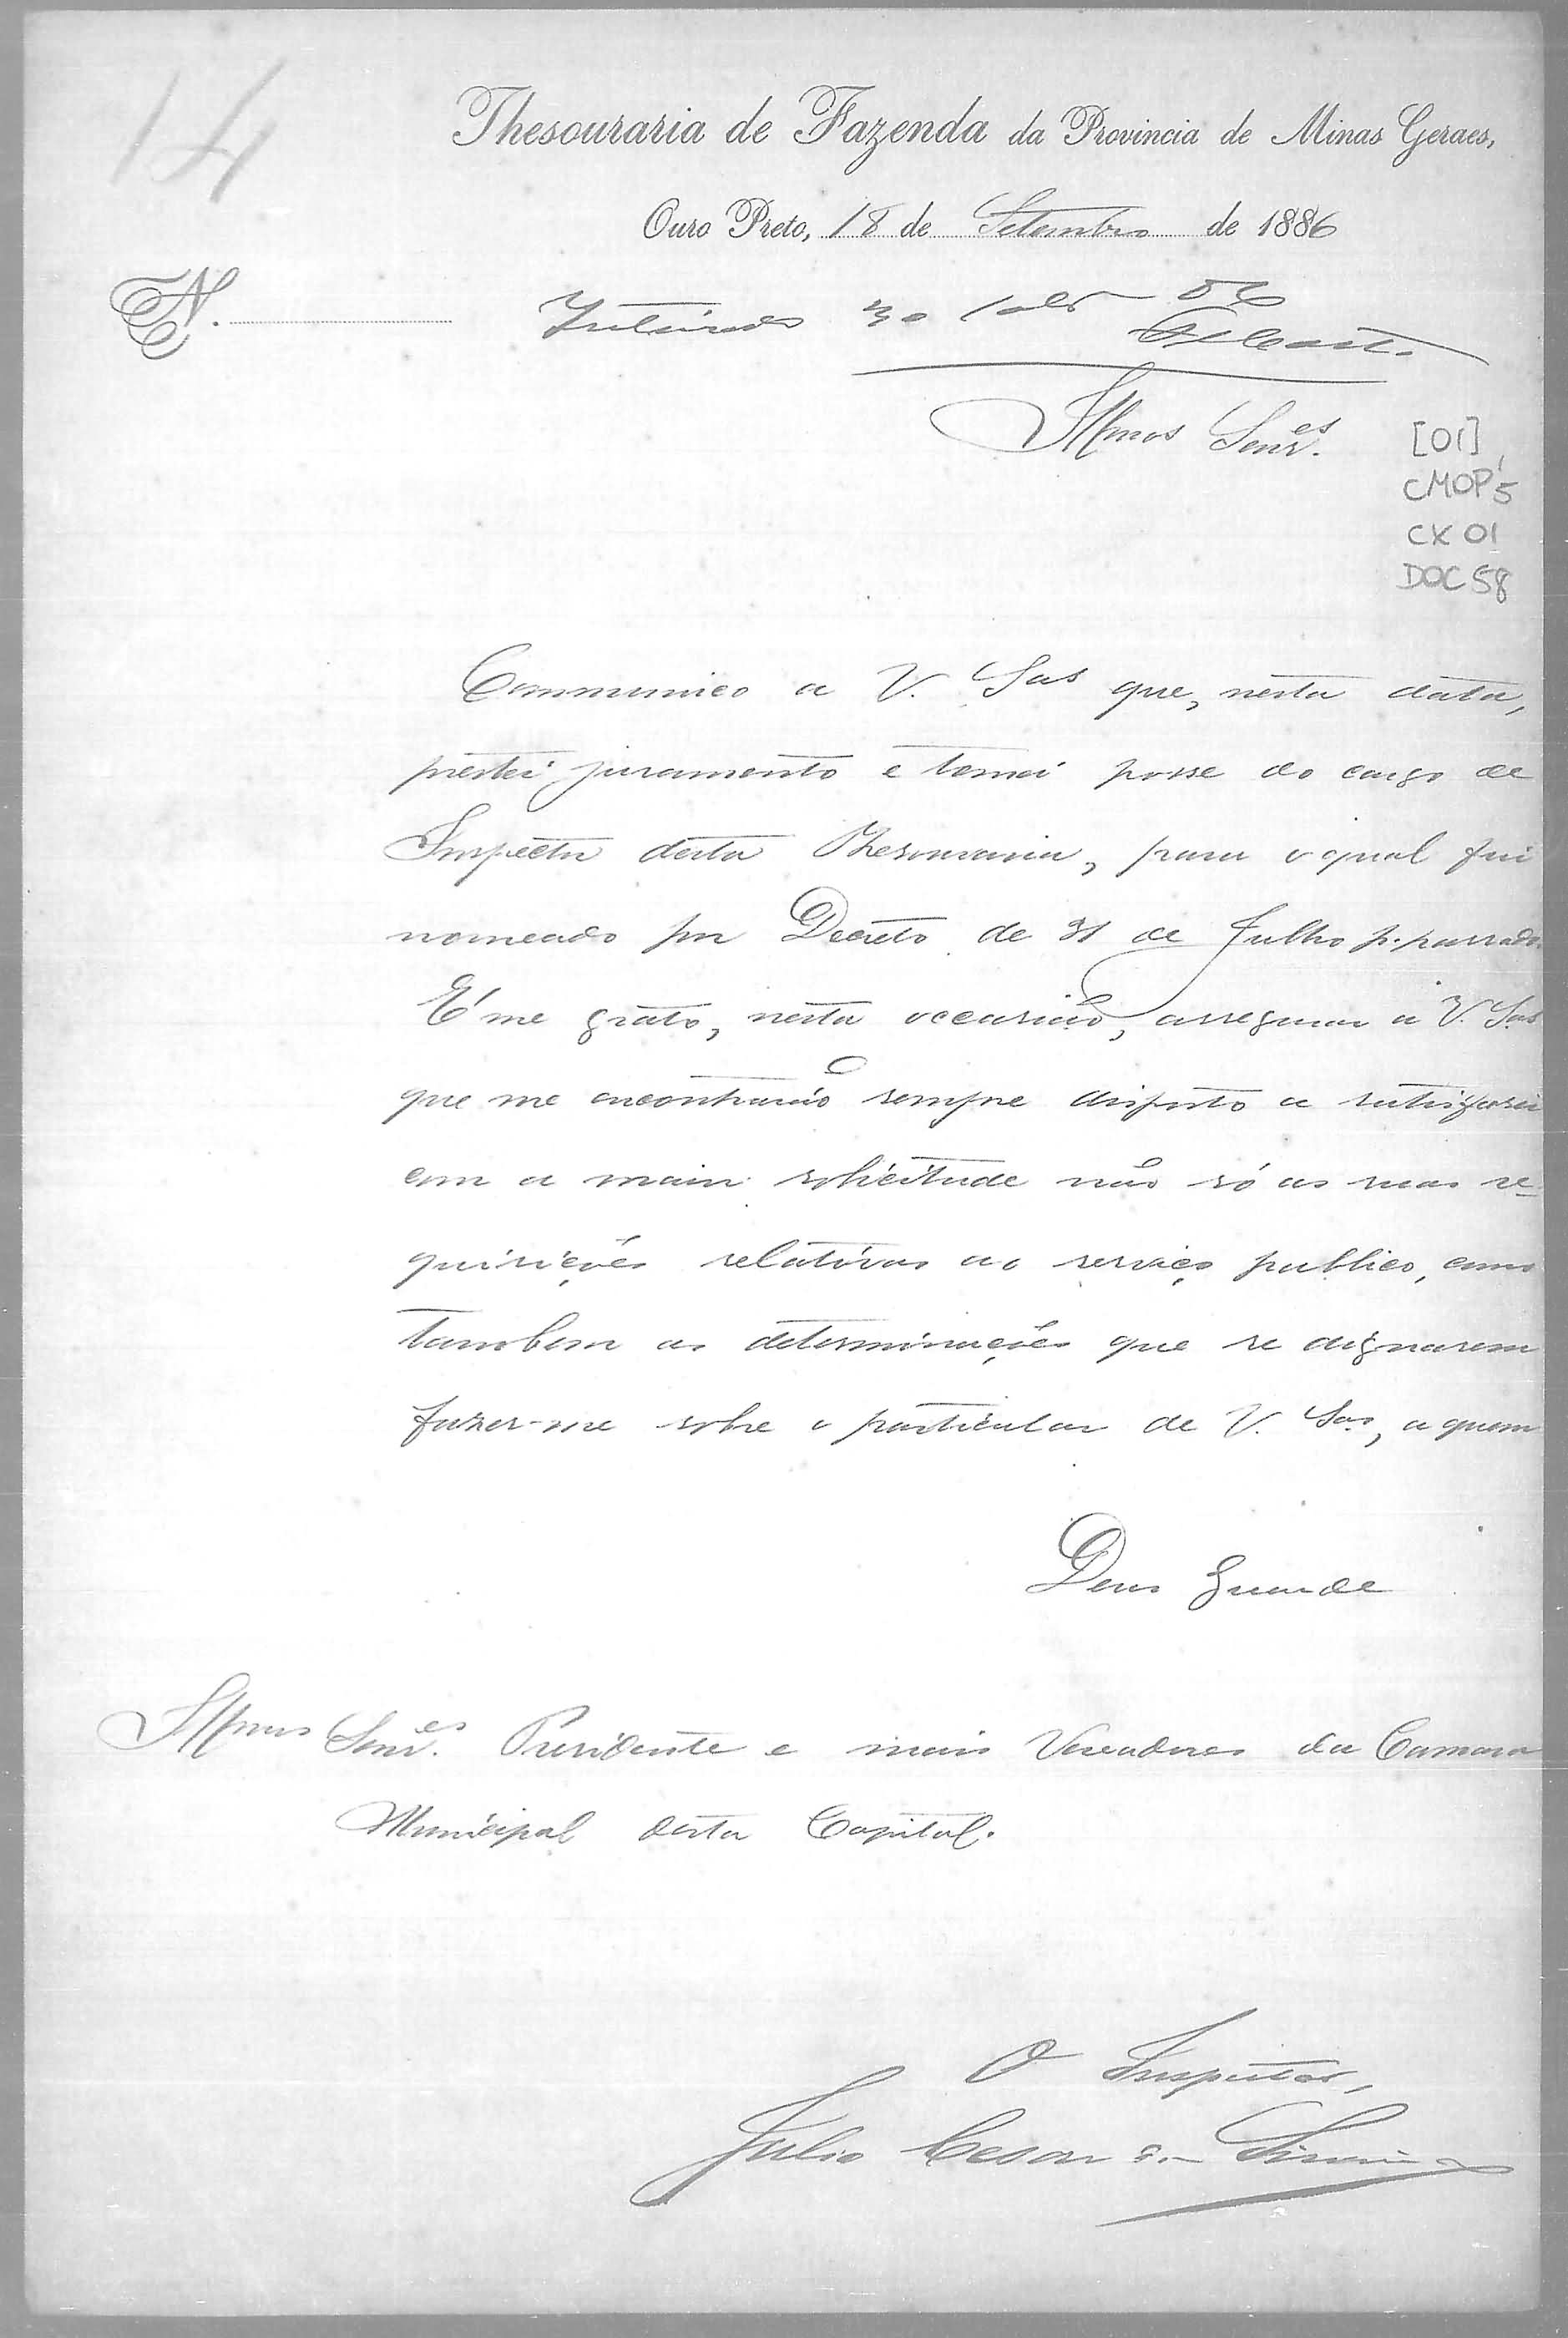 14
Thesouraria de Fazenda da Provincia de Minas Geraes,
Ouro Preto, 18 de Setembro de 1886
N.
Inteirado
Illmos Senr.es
[01]
CMOP 5
CX 01
DOC 58
Communico a V. Sas que, nesta data,
prestei juramento e tomei posse do cargo de
Inspector desta Thesouraria, para o qual fui
nomeado por Decreto de 31 de Julho p. passado.
É me grato, nesta occasião, assegurar a V. Sas
que me encontrarão sempre disposto a satisfaser
com a maior solicitude não só as suas re-
quisições relativas ao serviço publico, como
tambem as determinações que se dignarem
fazer-me sobre o particular de V. Sas, a quem
Deus Guarde
Illmos Senr.es Presidente e mais Vereadores da Camara
Municipal desta Capital.
O Inspector,
Julio Cesar